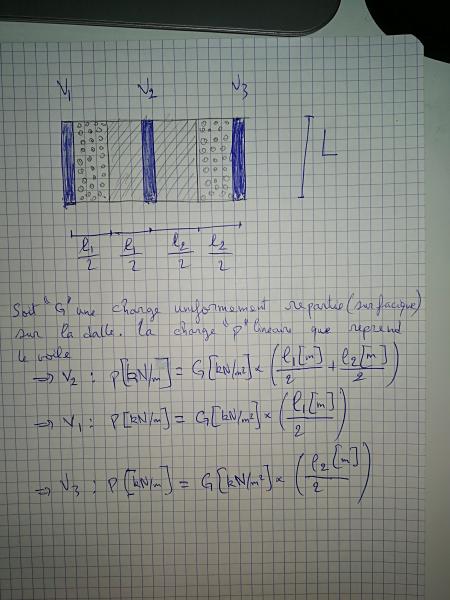 V1 V2 V3
L
l1/2 l1/2 l2/2 l2/2
Soit "G" une charge uniformement repartie (surfacique)
sur la dalle. la charge "p" lineaire que reprend
le voile
⇒ V2 : P[kN/m] = G[kN/m²] × (l1[m]/2 + l2[m]/2)
⇒ V1 : P[kN/m] = G[kN/m²] × (l1[m]/2)
⇒ V3 : P[kN/m] = G[kN/m²] × (l2[m]/2)